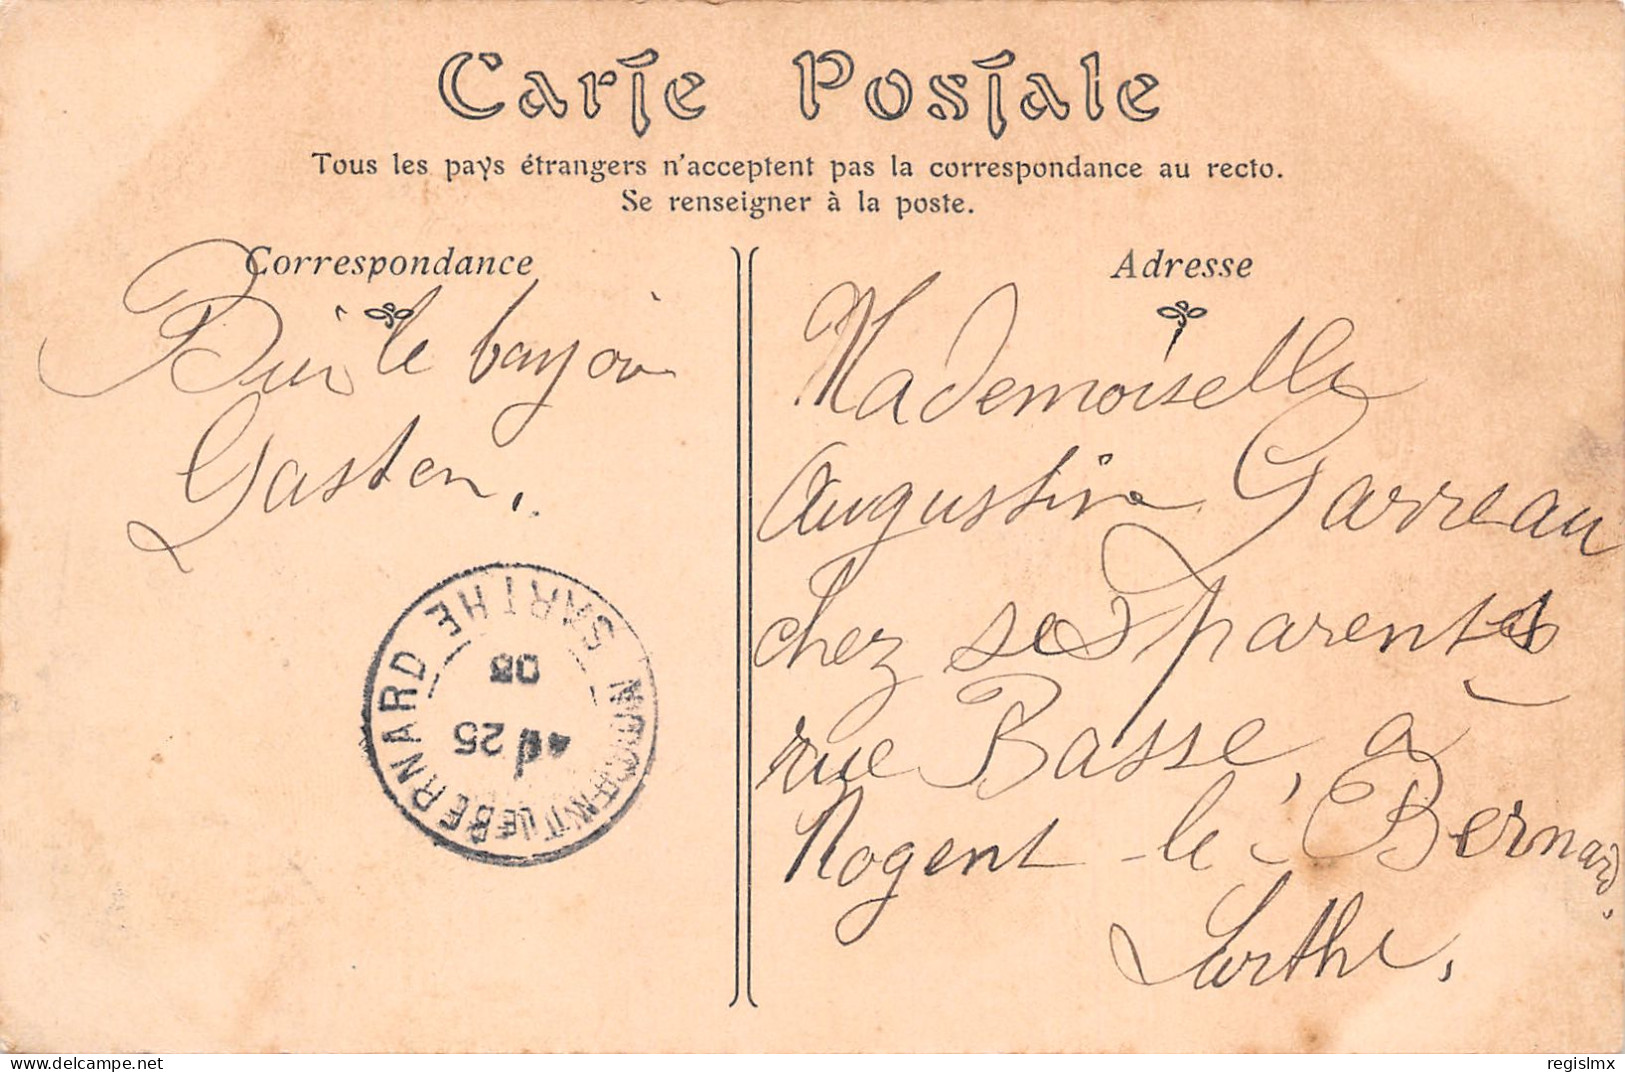 Carte Postale
Tous les pays étrangers n'acceptent pas la correspondance au recto.
Se renseigner à la poste.
Correspondance
le
Gaston.
NOGENT LE BERNARD SARTHE
25
08
Adresse
Mademoiselle
Augustine Garreau
chez ses parents
rue Basse, à
Nogent-le-Bernard.
Sarthe.
delcampe.net
regislmx